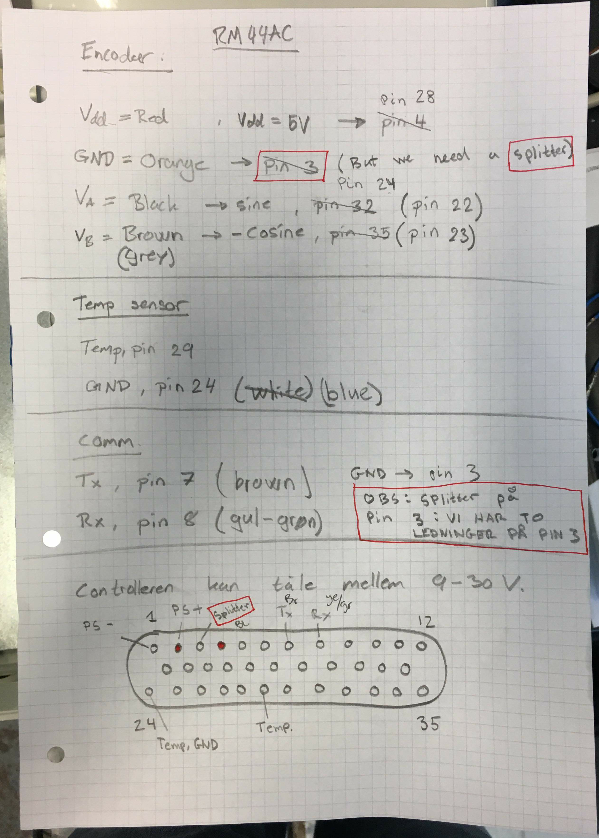 RM44AC
Encoder.
Vdd = Red , Vdd = 5V → pin 28
pin 4
GND = Orange → pin 3 (But we need a splitter)
pin 24
VA = Black → sine , pin 32 (pin 22)
VB = Brown → -Cosine , pin 35 (pin 23)
(grey)
Temp sensor
Temp, pin 29
GND , pin 24 (white) (blue)
Comm.
Tx , pin 7 (brown)
GND → pin 3
Rx , pin 8 (gul-grøn)
OBS: Splitter på
Pin 3 : VI HAR TO
LEDNINGER PÅ PIN 3
Controlleren kan tåle mellem 9-30 V.
PS - 1 PS+ Splitter Br Tx ye/gr Rx 12
BL
24 35
Temp, GND Temp.